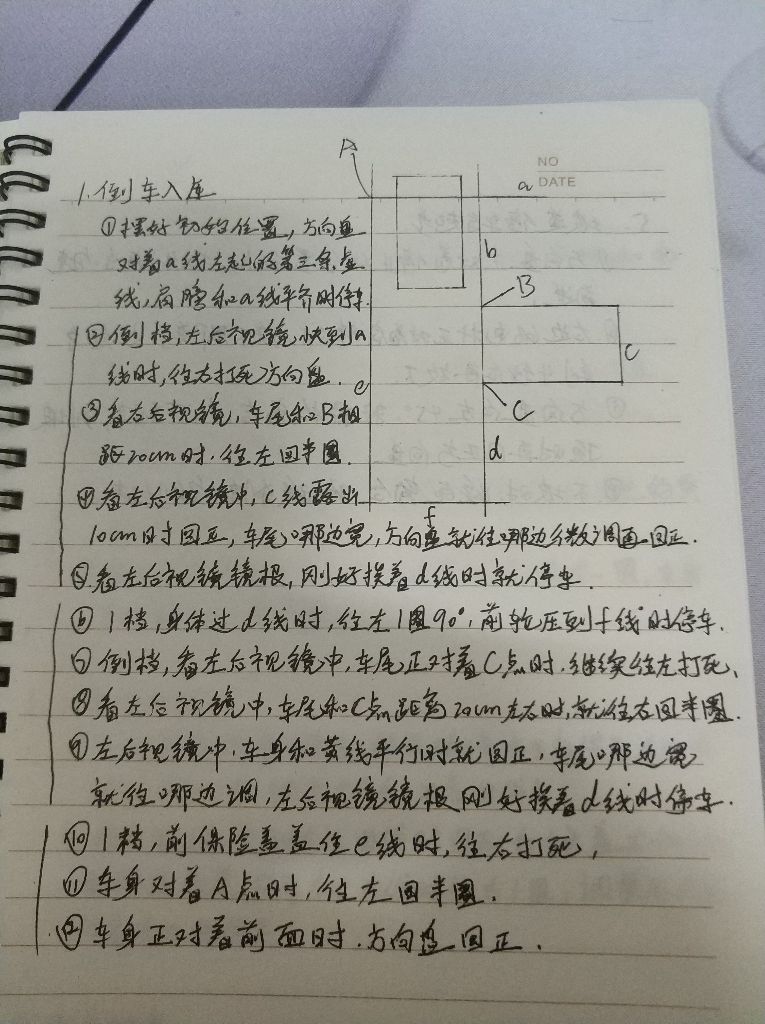 A
NO
DATE
a
1. 倒车入库
①摆好初始位置，方向盘
对着a线左起的第三条虚
线，肩膀和a线平齐时停车.
b
B
②倒档，左后视镜快到a
线时，往右打死方向盘.
e
c
③看右后视镜，车尾和B相
距20cm时.往左回半圈.
C
d
④看左后视镜中，C线露出
f
10cm时回正，车尾哪边宽，方向盘就往哪边分数调再回正.
⑤看左后视镜镜根，刚好挨着d线时就停车.
⑥1档，身体过d线时，往左1圈90°，前轮压到f线时停车.
⑦倒档，看左后视镜中，车尾正对着C点时，继续往左打死、
⑧看左后视镜中，车尾和C点距离20cm左右时，就往右回半圈.
⑨左后视镜中.车身和黄线平行时就回正，车尾哪边宽
就往哪边调，左后视镜镜根刚好挨着d线时停车.
⑩1档，前保险盖盖住e线时，往右打死，
⑪车身对着A点时，往左回半圈.
⑫车身正对着前面时.方向盘回正.